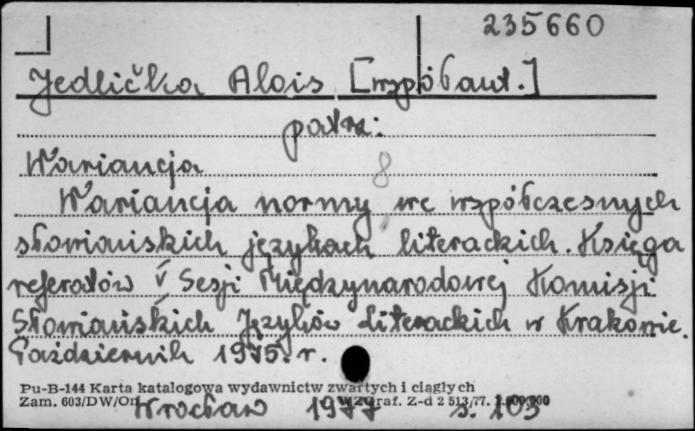 235660
Jedlička Alois [współaut.]
patrz:
Wariancja
8
Wariancja normy we współczesnych
słowiańskich językach literackich. Księga
referatów V Sesji Międzynarodowej Komisji
Słowiańskich Języków Literackich w Krakowie.
Październik 1975. r.
Pu-B-144 Karta katalogowa wydawnictw zwartych i ciągłych
Zam. 603/DW/On graf. Z-d 2 513/77.
Wrocław 1977 s. 103